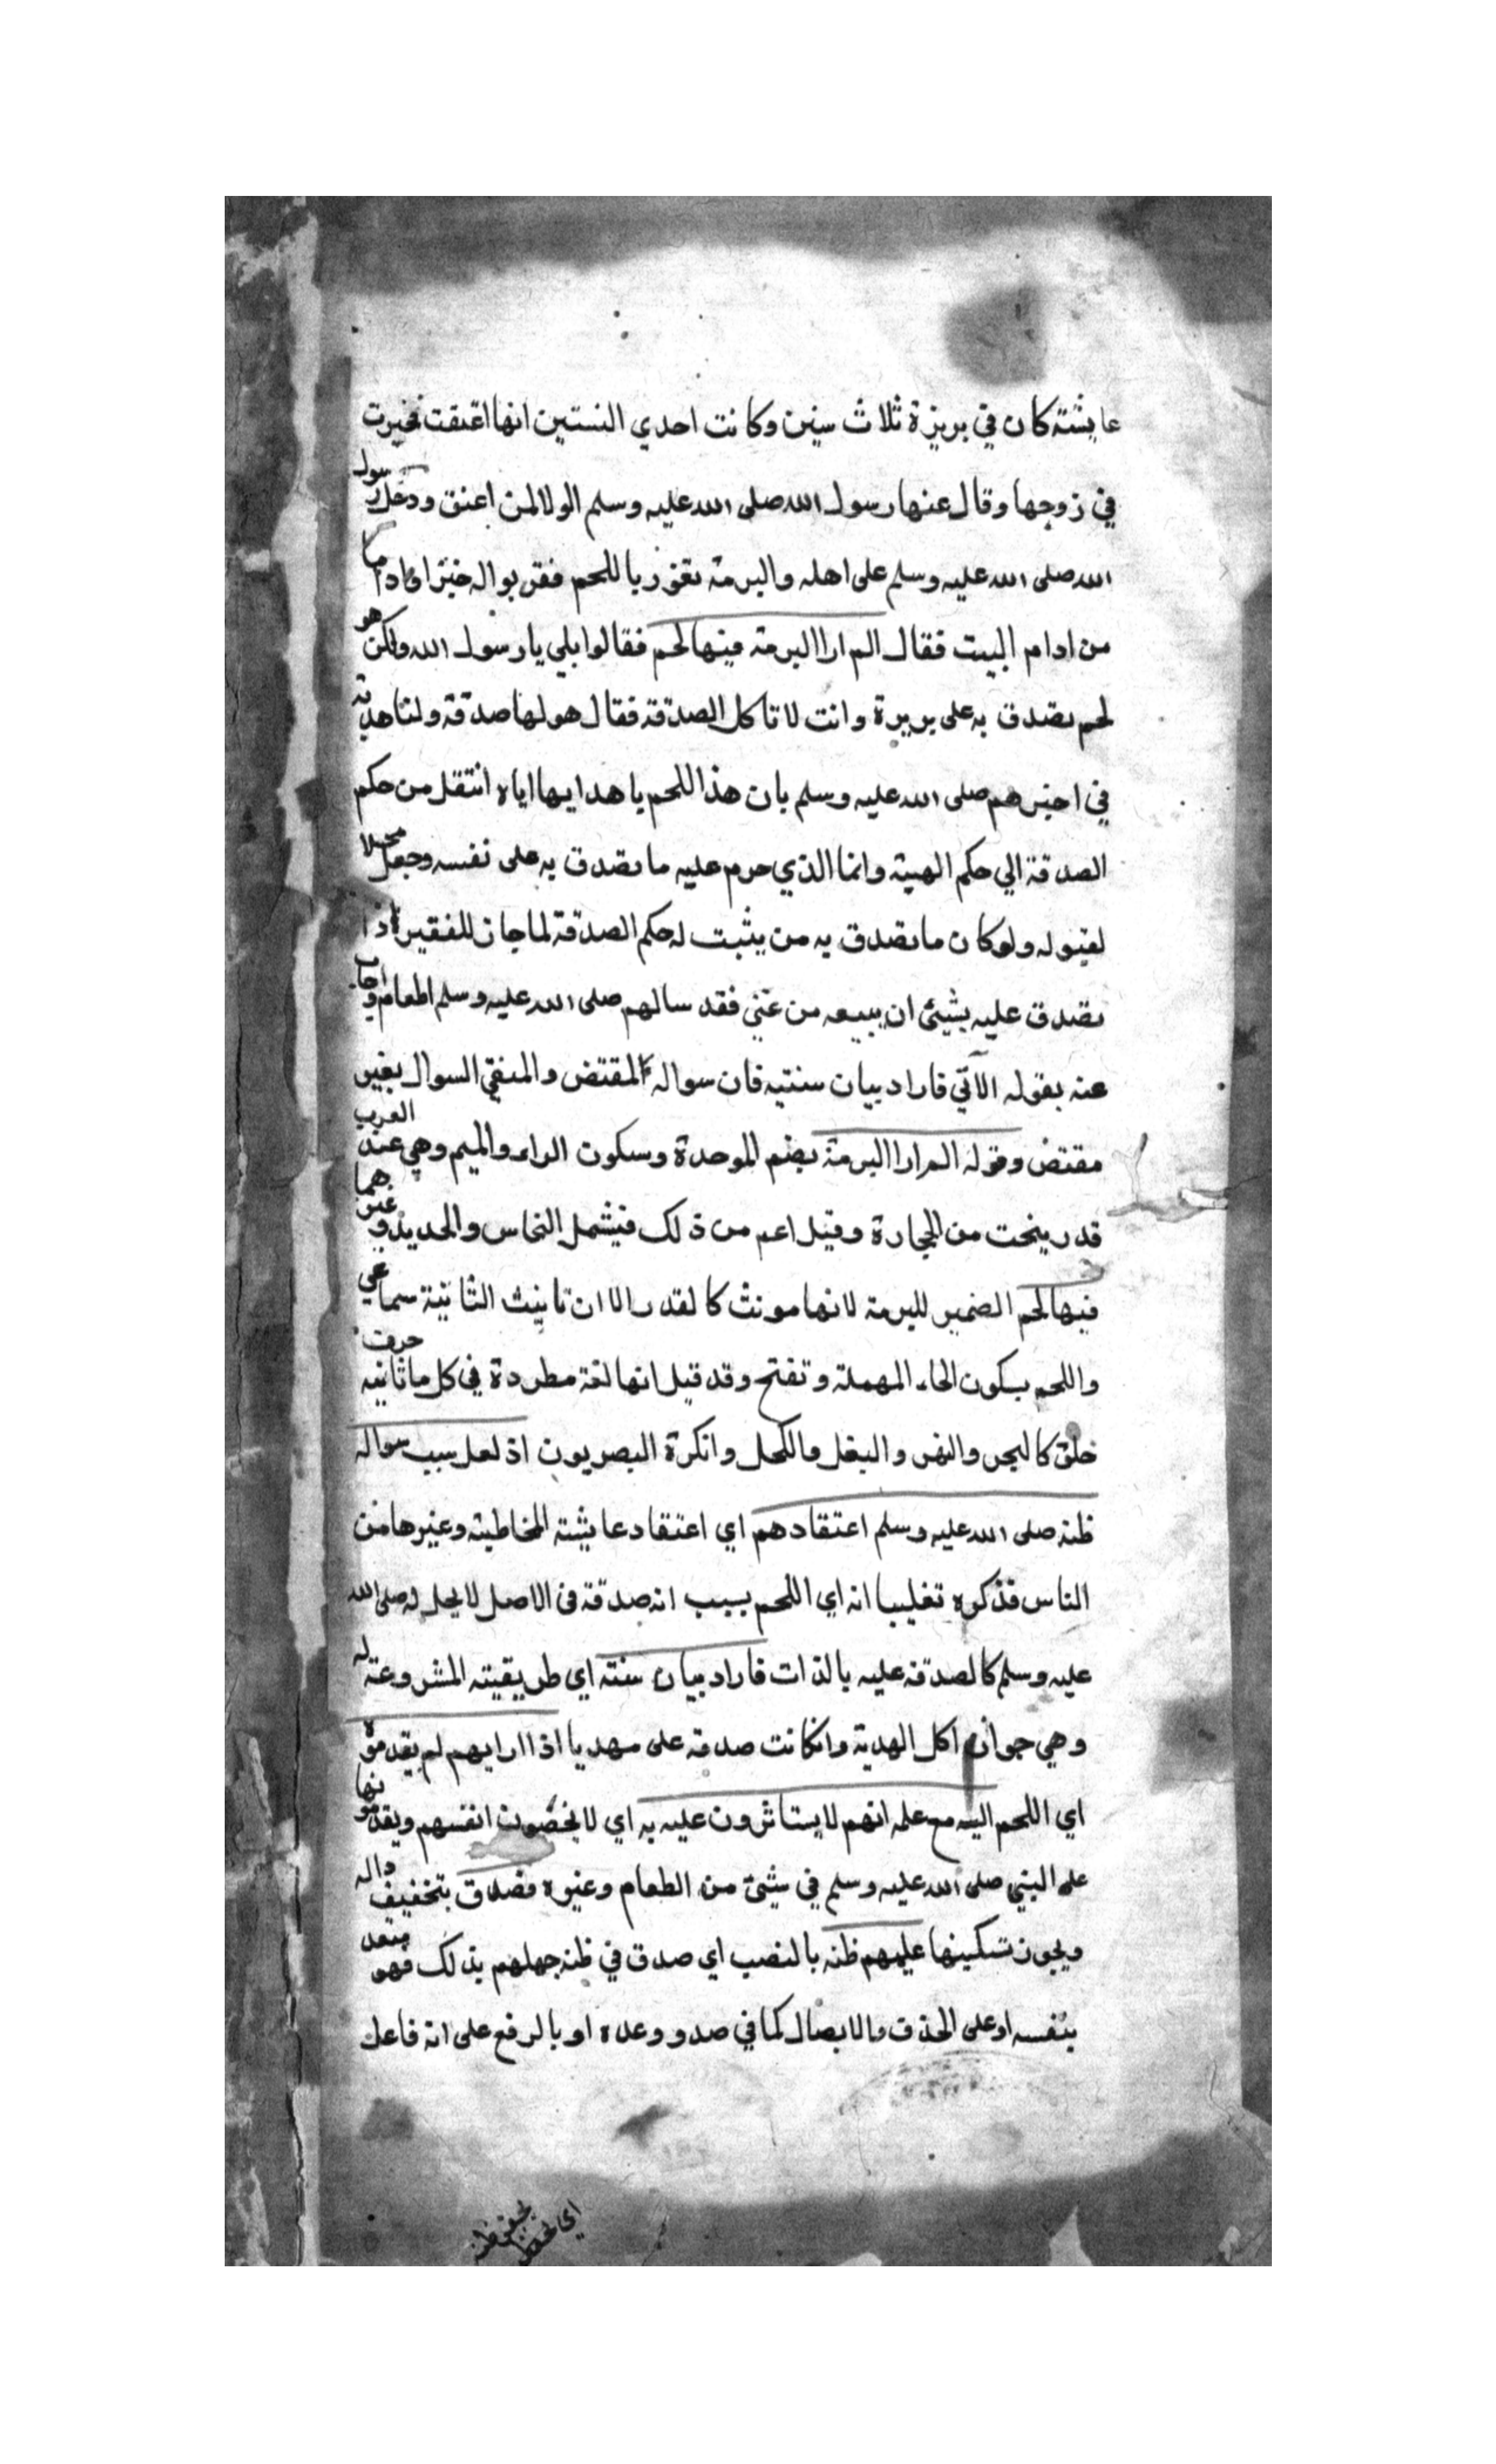 عايشة كان في بريرة ثلاث سنين وكانت احدي السنتين انها اعتقت فخيرت
في زوجها وقال عنها رسول الله صلى الله عليه وسلم الولا لمن اعتق ودخل رسول
الله صلى الله عليه وسلم على اهله والبرمة تفور باللحم فقربوا له خبزا واداما
من ادام البيت فقال الم ارا البرمة فيها لحم فقالوا بلي يا رسول الله ولكن هو
لحم تصدق به على بريرة وانت لا تاكل الصدقة فقال هو لها صدقة ولنا هدية
في اخبرهم صلى الله عليه وسلم بان هذا اللحم باهدايها اياه انتقل من حكم
الصدقة الي حكم الهبة وانما الذي حرم عليه ما تصدق به على نفسه وجعل محلا
لقبوله ولو كان ما تصدق به من يثبت له حكم الصدقة لما جاز للفقير اذا
تصدق عليه بشيئ ان يبيعه من غني فقد سالهم صلى الله عليه وسلم الطعام واجاب
عنه بقوله الاتي فاراد بيان سنتيه فان سواله المقتض والمنفي السوال بغير
مقتض وقوله الم ارا البرمة بضم الموحدة وسكون الراء والميم وهي عند العرب
قدر ينحت من الحجارة وقيل اعم من ذلك فيشمل النحاس والحديد وغيرهما
فيها لحم الضمير للبرمة لانها مونث كالقدر الا ان تانيث الثانية سماعي
واللحم بسكون الحاء المهملة وتفتح وقد قيل انها لغة مطردة في كل ما ثانيه حرف
خلق كالبحر والنهر والبغل والكحل وانكرة البصريون اذ لعل سبب سواله
ظنه صلى الله عليه وسلم اعتقادهم اي اعتقاد عايشة المخاطبة وغيرها من
الناس فذكره تغليبا انه اي اللحم بسبب انه صدقة في الاصل لا يحل له صلى الله
عليه وسلم كالصدقة عليه بالذات فاراد بيان سنته اي طريقيته المشروعة له
وهي جواز اكل الهدية وانكانت صدقة على مهديا اذا رايهم لم يقدموه
اي اللحم اليه مع علمه انهم لا يستاثرون عليه به اي لا يخصون انفسهم ويقدمونها
على النبي صلى الله عليه وسلم في شيئ من الطعام وغيره فصدق بتخفيف داله
ويجوز تسكينها عليهم ظنه بالنصب اي صدق في ظنه جهلهم بذلك فهو متعد
بنفسه او على الحذف والايصال كما في صدو وعده او بالرفع على انه فاعل